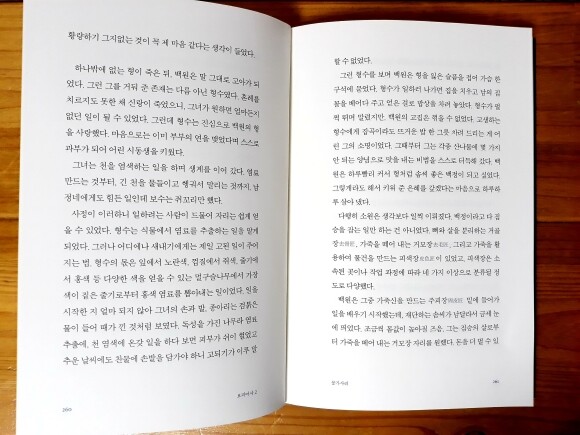 황량하기 그지없는 것이 꼭 제 마음 같다는 생각이 들었다.
하나밖에 없는 형이 죽은 뒤, 백원은 말 그대로 고아가 되
었다. 그런 그를 거둬 준 존재는 다름 아닌 형수였다. 혼례를
치르지도 못한 채 신랑이 죽었으니, 그녀가 원하면 얼마든지
없던 일이 될 수 있었다. 그런데 형수는 진심으로 백원의 형
을 사랑했다. 마음으로는 이미 부부의 연을 맺었다며 스스로
과부가 되어 어린 시동생을 키웠다.
그녀는 천을 염색하는 일을 하며 생계를 이어 갔다. 염료
만드는 것부터, 긴 천을 붙들이고 헹궈서 말리는 것까지, 남
정네에게도 힘든 일인데 보수는 쥐꼬리만 했다.
사정이 이러하니 일하려는 사람이 드물어 자리는 쉽게 얻
을 수 있었다. 형수는 식물에서 염료를 추출하는 일을 맡게
되었다. 그러나 어디에나 새내기에게는 제일 고된 일이 주어
지는 법. 형수의 몫은 잎에서 노란색, 껍질에서 쥐색, 줄기에
서 홍색 등 다양한 색을 얻을 수 있는 멀구슬나무에서 가장
색이 짙은 줄기로부터 홍색 염료를 뽑아내는 일이었다. 일을
시작한 지 얼마 되지 않아 그녀의 손과 발, 종아리는 검붉은
물이 들어 때가 낀 것처럼 보였다. 독성을 가진 나무라 염료
추출에, 천 염색에 온갖 일을 하다 보면 피부가 쉬이 헐었고
추운 날씨에도 찬물에 손발을 담가야 하니 고되기가 이루 말
260
할 수 없었다.
그런 형수를 보며 백원은 형을 잃은 슬픔을 접어 가슴 한
구석에 묻었다. 형수가 일하러 나가면 집을 치우고 남의 집
품을 메어다 주고 얻은 걸로 밥상을 차려 놓았다. 형수가 펄
쩍 뛰며 말렸지만, 백원의 고집은 꺾을 수 없었다. 고생하는
형수에게 잡곡이라도 뜨거운 밥 한 그릇 차려 드리는 게 어
린 그의 소명이었다. 그때부터 그는 각종 산나물에 몇 가지
안 되는 양념으로 맛을 내는 비법을 스스로 터득해 갔다. 백
원은 하루빨리 커서 형처럼 솜씨 좋은 백정이 되고 싶었다.
그렇게라도 해서 키워 준 은혜를 갚겠다는 마음으로 하루하
루 살아 냈다.
다행히 소원은 생각보다 일찍 이뤄졌다. 백정이라고 다 짐
승을 잡는 일만 하는 건 아니었다. 뼈와 살을 분리하는 거골
장去骨匠, 가죽을 떼어 내는 거모장去毛匠, 그리고 가죽을 활
용하여 물건을 만드는 피색장皮色匠이 있었고, 피색장은 소
속된 곳이나 작업 과정에 따라 네 가지 이상으로 분류될 정
도로 다양했다.
백원은 그중 가죽신을 만드는 주피장周皮匠 밑에 들어가
일을 배우기 시작했는데, 재단하는 솜씨가 남달라서 금세 눈
에 띄었다. 조금씩 몸값이 높아질 즈음, 그는 짐승의 살로부
터 가죽을 떼어 내는 거모장 자리를 원했다. 돈을 더 벌 수 있
261